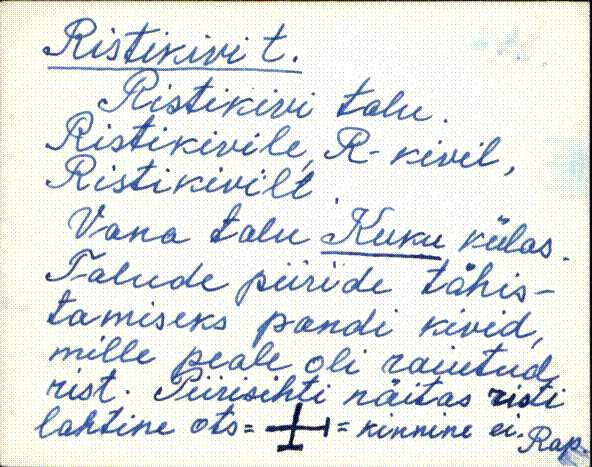 Ristikivi t.
Ristikivi talu.
Ristikivile, R-kivil,
Ristikivilt
Vana talu Kuku külas.
Talude piiride tähis-
tamiseks pandi kivid,
mille peale oli raiutud
rist. Piirisihti näitas risti
lahtine ots = = kinnine ei. Rap.